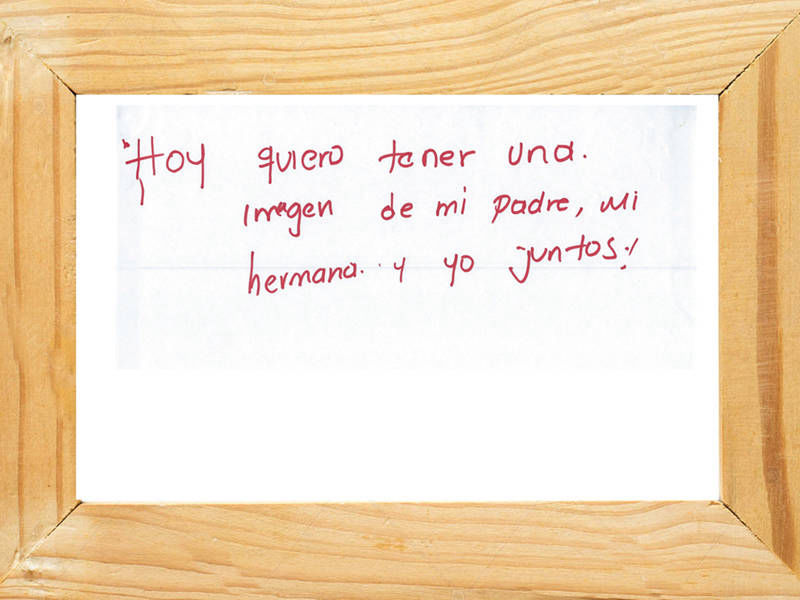 ¡Hoy quiero tener una
imagen de mi padre, mi
hermana y yo juntos!